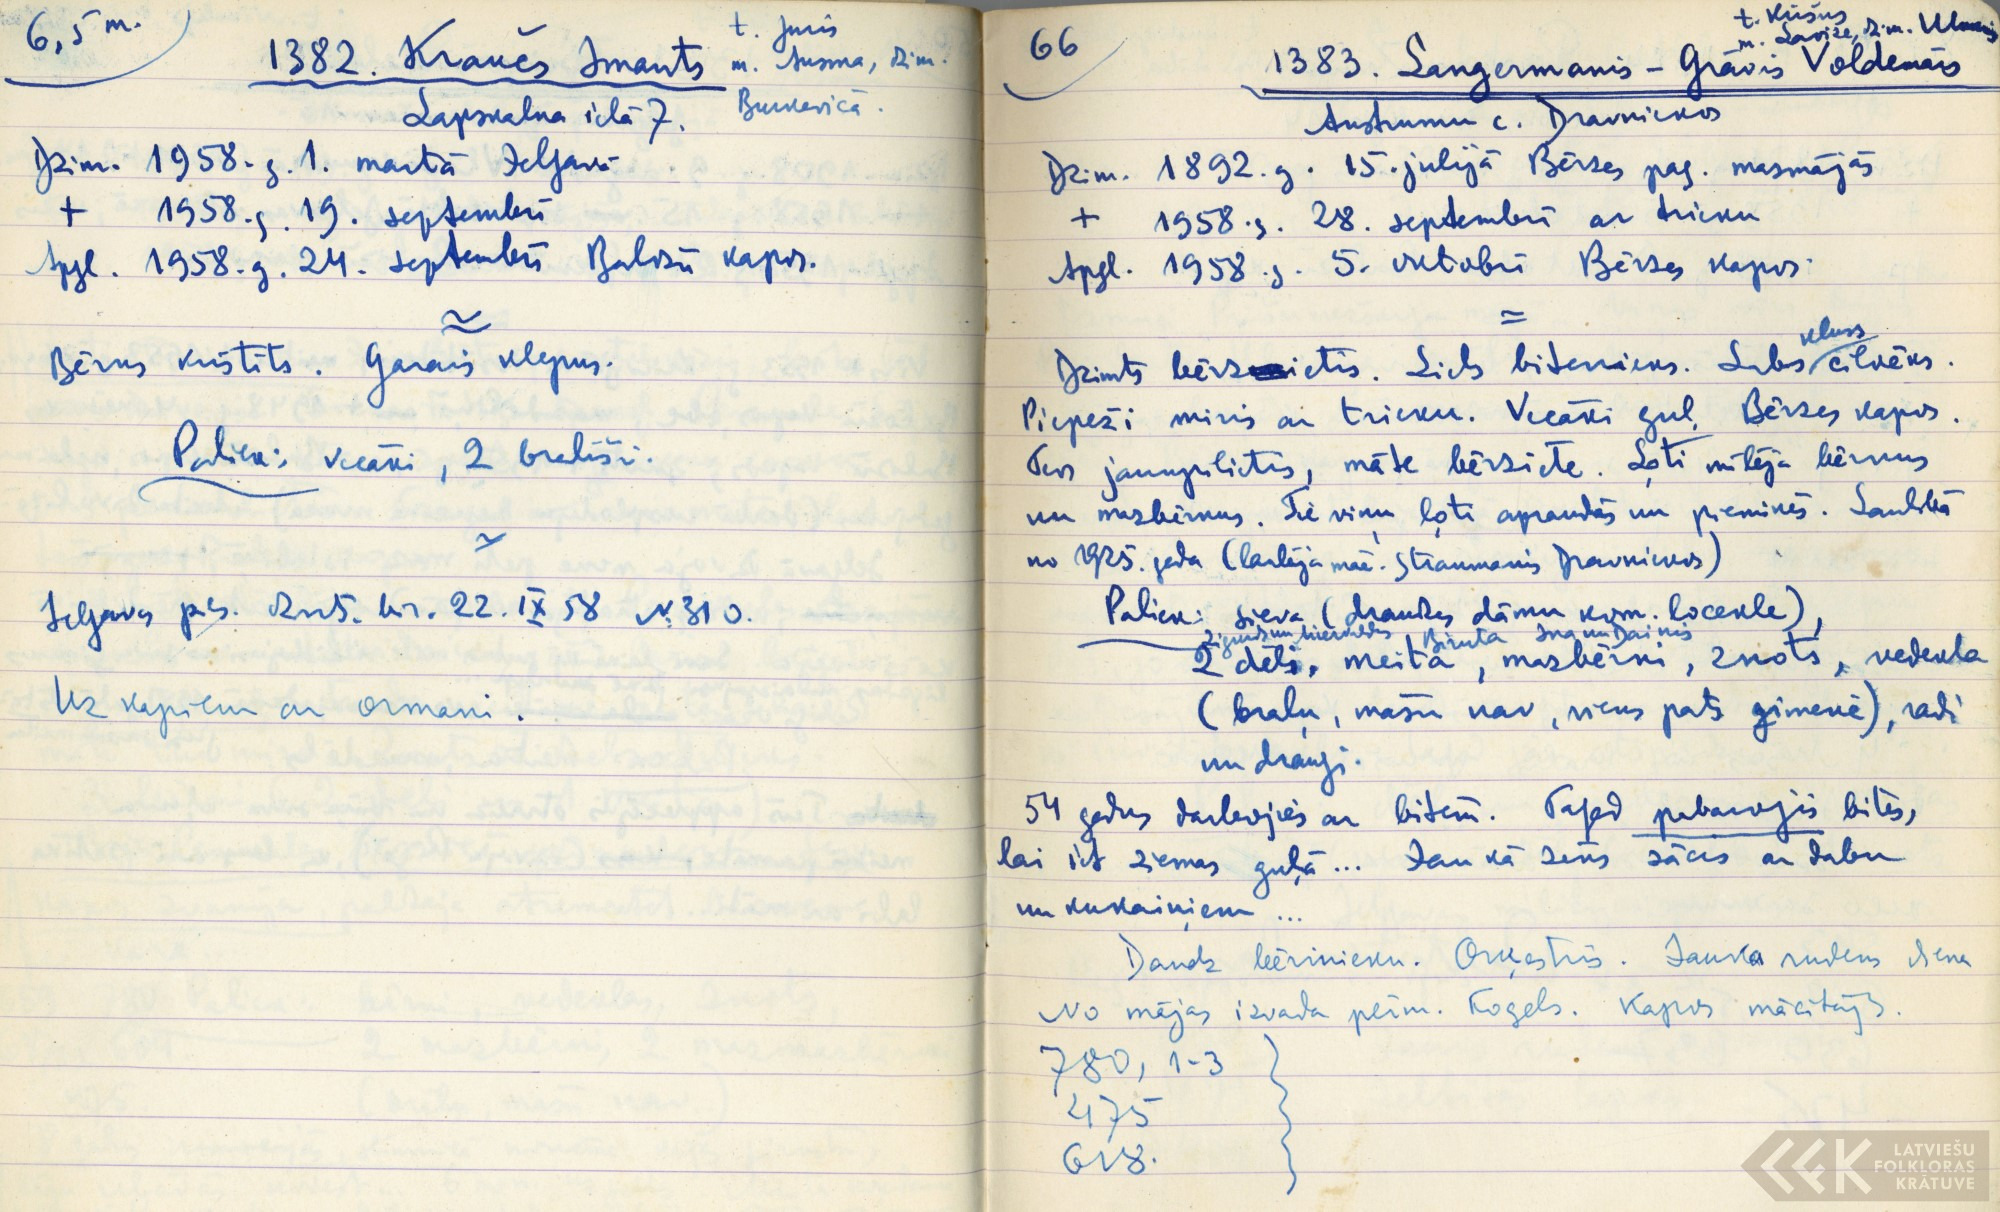 6,5 m.
1382. Kraučs Imants
t. Juris
m. Ausma, dzim.
Burkevica.
Lapskalna ielā 7.
Dzim. 1958. g. 1. martā Jelgavā
+ 1958. g. 19. septembrī
Apgl. 1958. g. 24. septembrī Baložu kapos.
Bērns kristīts. Garais klepus.
Paliek: vecāki, 2 brālīši.
Jelgavas pils. dzīrts. bir. 22. IX 58 № 310.
Uz kapiem ar ormani.
66
t. Krišus
m. Lavīze, dzim.
1383. Langermanis - Grāvis Voldemārs
Austrumu c. Dravniekos
Dzim. 1892. g. 15. jūlijā Bērzes pag. mazmājās
+ 1958. g. 28. septembrī ar trieku
Apgl. 1958. g. 5. oktobrī Bērzes kapos.
kluss
Dzimts bērzenietis. Liels bitenieks. Labs cilvēks.
Piepeši miris ar trieku. Vecāki guļ Bērzes kapos.
Tēvs jaunpilietis, māte bērziete. Ļoti mīlēja bērnus
un mazbērnus. Tie viņu ļoti apraudās un pieminēs. Laulībā
no 1925. gada (laulāja māc. Straumanis Dravniekos)
Paliek: sieva (draudzes dāmu kom. locekle),
Biruta
2 dēli, meita, mazbērni, znots, vedekla
(brāļu, māsu nav, viens pats ģimenē), radi
un draugi.
54 gadus darbojies ar bitēm. Tagad pabarojis bites,
lai iet ziemas guļā... Jau kā zēns sācis ar dabu
un kukaiņiem...
Daudz bērinieku. Orķestris. Jauka rudens diena
No mājas izvada pērm. Kogels. Kapos mācītājs.
780, 1-3
475
618.
LATVIEŠU
FOLKLORAS
KRĀTUVE